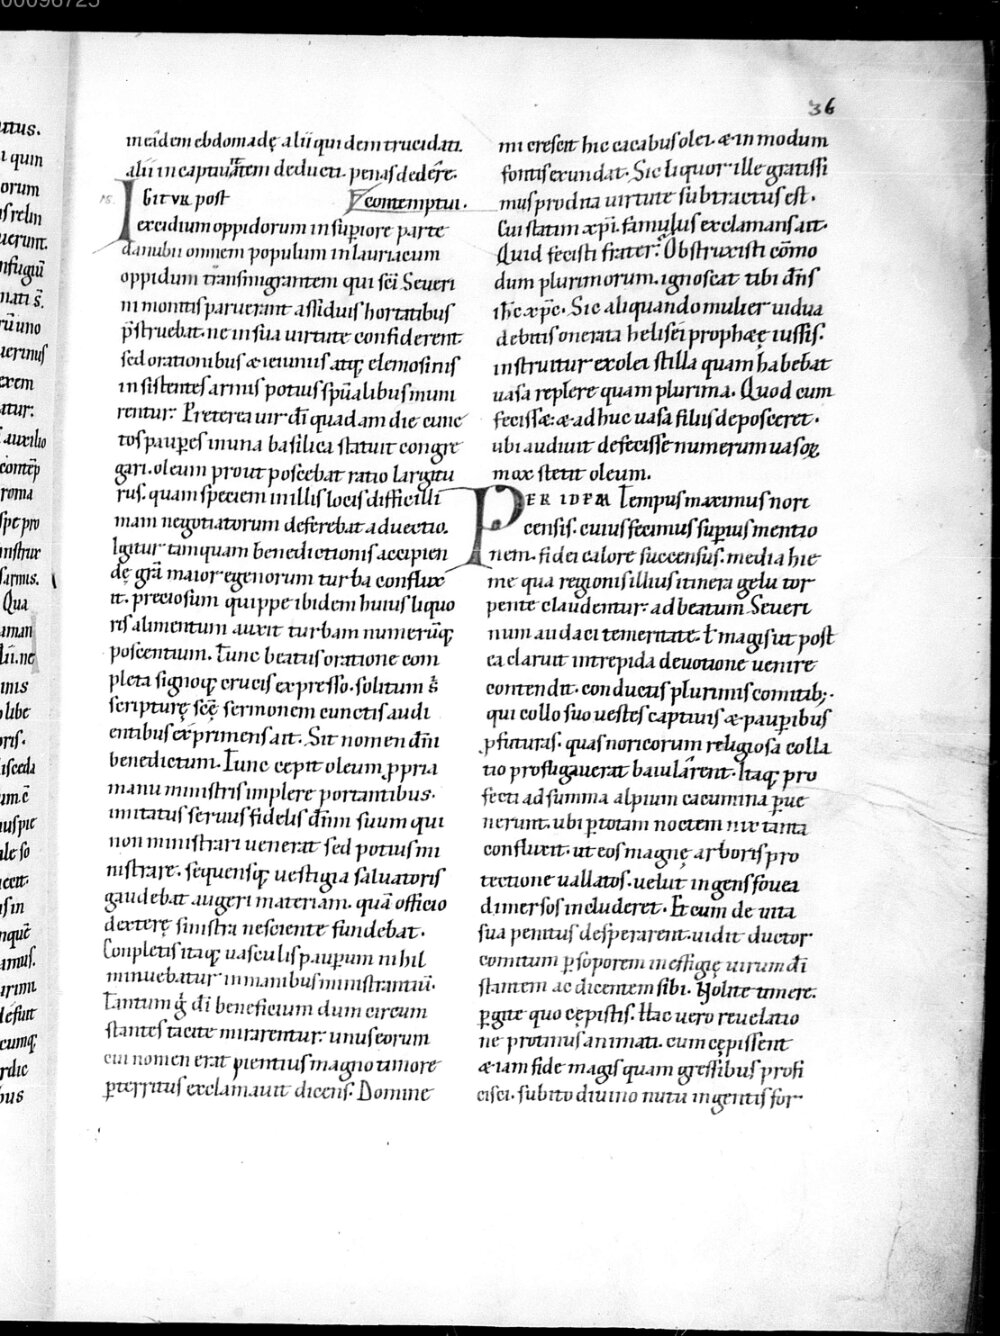 36
in eadem ebdomadę alii quidem trucidati.
alii in captiuitatem deducti. penas dedere.
IGITUR post contemptui.
excidium oppidorum in superiore parte
danubii omnem populum in lauriacum
oppidum transmigrantem qui sc̄i Seueri
ni monitis paruerant assiduis hortatibus
p̄struebat. ne in sua uirtute confiderent.
sed orationibus & ieiuniis atq; elemosinis
insistentes armis potius sp̄ualibus muni
rentur. Preterea uir dī quadam die cunc
tos paup̱es in una basilica statuit congre
gari. oleum prout poscebat ratio largitu
rus. quam speciem in illis locis difficilli
mam negotiatorum deferebat aduectio.
Igitur tamquam benedictionis accipien
dę grā maior egenorum turba conflux
it. preciosum quippe ibidem huius liquo
ris alimentum auxit turbam numerūq;
poscentium. Tunc beatus oratione com
pleta signoq; crucis expresso. solitum s̄
scripturę scę̄ sermonem cunctis audi
entibus exprimens ait. Sit nomen dn̄i
benedictum. Tunc cepit oleum ꝓpria
manu ministris implere portantibus.
imitatus seruus fidelis dn̄m suum qui
non ministrari uenerat sed potius mi
nistrare. sequensq; uestigia saluatoris
gaudebat augeri materiam. quā officio
dexterę sinistra nesciente fundebat.
Conpletis itaq; uasculis paup̱um nihil
minuebatur in manibus ministrantiū.
Tantum ḡ dī beneficium dum circum
stantes tacite mirarentur. unus eorum
cui nomen erat pientius magno timore
p̱territus exclamauit dicens. Domine
mi crescit hic cacabus olei. & in modum
fontis exundat. Sic liquor ille gratissi
mus prodita uirtute subtractus est.
Cui statim xp̄i famulus exclamans ait.
Quid fecisti frater? Obstruxisti cōmo
dum plurimorum. ignoscat tibi dn̄s
ih̄c xp̄c. Sic aliquando mulier uidua
debitis onerata helisei prophaeę iussis.
instruitur ex olei stilla quam habebat
uasa replere quam plurima. Quod cum
feciss&. & adhuc uasa filiis deposceret.
ubi audiuit defecisse numerum uasoꝝ
mox stetit oleum.
PER IDEM Tempus maximus nori
censis. cuius fecimus sup̱ius mentio
nem. fidei calore succensus. media hie
me qua regionis illius itinera gelu tor
pente claudentur. ad beatum Seueri
num audaci temeritate. t̄ magis ut post
ea claruit intrepida deuotione uenire
contendit. conductis plurimis comitib;.
qui collo suo uestes captiuis & paup̱ibus
ꝓfuturas. quas noricorum religiosa colla
tio profligauerat baiularent. Itaq; pro
fecti ad summa alpium cacumina p̱ue
nerunt. ubi p̱ totam noctem nix tanta
confluxit. ut eos magnę arboris pro
tectione uallatos. uelut ingens fouea
dimersos includeret. Et cum de uita
sua penitus desperarent. uidit ductor
comitum p̱ soporem in effigię uirum dī
stantem ac dicentem sibi. Nolite timere.
p̱gite quo cępistis. Hac uero reuelatio
ne protinus animati. cum cępissent
& iam fide magis quam gressibus profi
cisci. subito diuino nutu ingentis for-